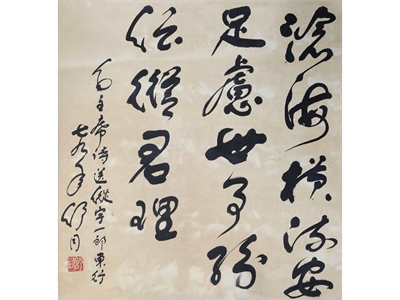 滄海橫流安
足慮世事紛
紜從君理
毛主席詩送縱宇一郎東行
七九年舒同